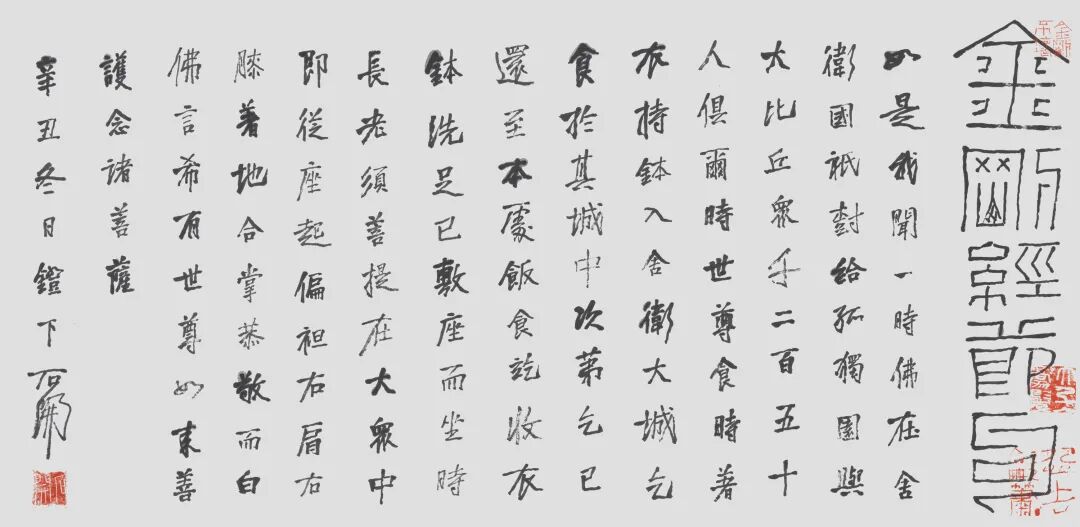 金剛經節
如是我聞一時佛在舍
衛國祇尌給孤獨園與
大比丘眾千二百五十
人俱爾時世尊食時著
衣持鉢入舍衛大城乞
食於其城中次第乞已
還至本處飯食訖收衣
鉢洗足已敷座而坐時
長老須菩提在大眾中
即從座起偏袒右肩右
膝著地合掌恭敬而白
佛言希有世尊如來善
護念諸菩薩
辛丑冬日鐙下石